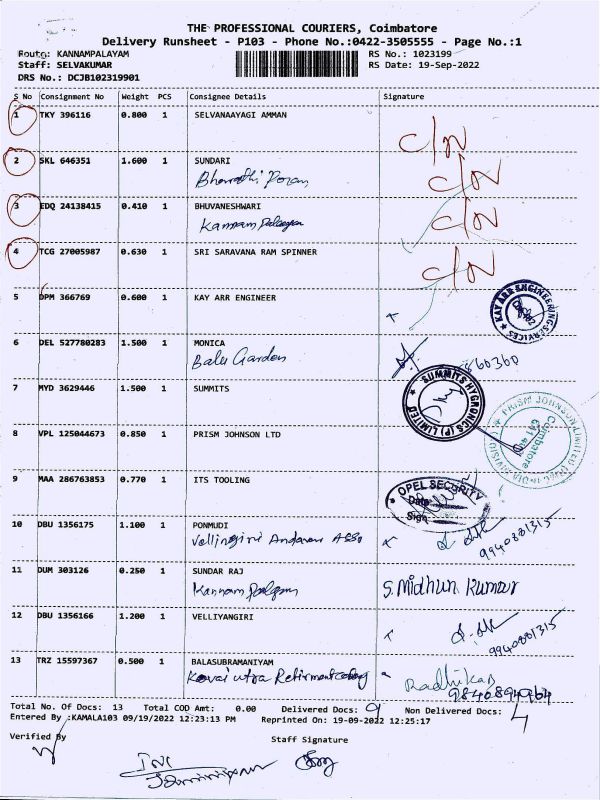 THE PROFESSIONAL COURIERS, Coimbatore
Delivery Runsheet - P103 - Phone No.:0422-3505555 - Page No.:1
Route: KANNAMPALAYAM RS No.: 1023199
Staff: SELVAKUMAR RS Date: 19-Sep-2022
DRS No.: DCJB102319901
S No Consignment No Weight PCS Consignee Details Signature
1 TKY 396116 0.800 1 SELVANAAYAGI AMMAN
C/N
2 SKL 646351 1.600 1 SUNDARI
C/N
3 EDQ 24138415 0.410 1 BHUVANESHWARI
C/N
4 TCG 27005987 0.630 1 SRI SARAVANA RAM SPINNER
C/N
5 DPM 366769 0.600 1 KAY ARR ENGINEER
KAY ARR ENGINEERING SERVICES
6 DEL 527780283 1.500 1 MONICA
Balu Garden 860360
7 MYD 3629446 1.500 1 SUMMITS
SUMMITS HYGRONICS (P) LIMITED
8 VPL 125044673 0.850 1 PRISM JOHNSON LTD
PRISM JOHNSON LIMITED
Coimbatore
9 MAA 286763853 0.770 1 ITS TOOLING
OPEL SECURITY
Date
Sign
10 DBU 1356175 1.100 1 PONMUDI
9940881315
11 DUM 303126 0.250 1 SUNDAR RAJ
S. Midhun Kumar
12 DBU 1356166 1.200 1 VELLIYANGIRI
9940881315
13 TRZ 15597367 0.500 1 BALASUBRAMANIYAM
Total No. Of Docs: 13 Total COD Amt: 0.00 Delivered Docs: 9 Non Delivered Docs: 4
Entered By :KAMALA103 09/19/2022 12:23:13 PM Reprinted On: 19-09-2022 12:25:17
Verified By Staff Signature